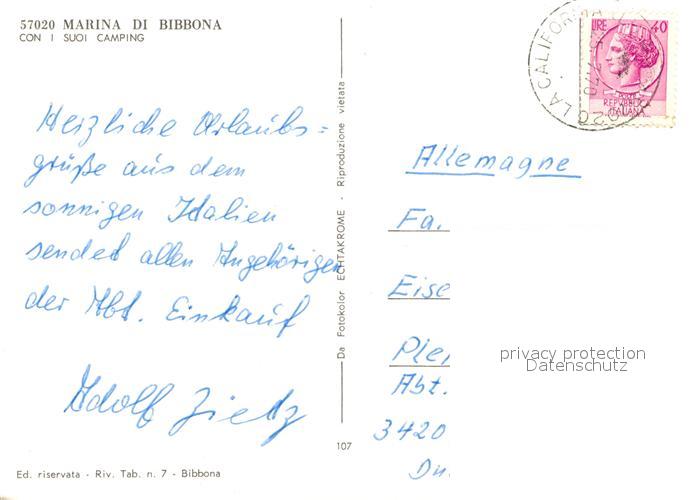 57020 MARINA DI BIBBONA
CON I SUOI CAMPING
Herzliche Urlaubs=
grüße aus dem
sonnigen Italien
sendet allen Angehörigen
der Abt. Einkauf
Adolf Zietz
Ed. riservata - Riv. Tab. n. 7 - Bibbona
Da Fotokolor ECHTAKROME - Riproduzione vietata
107
LIRE 40
POSTE
REPVBBLICA
ITALIANA
LA CALIFORNIA
Allemagne
Fa.
Eise
Ple
privacy protection
Datenschutz
Abt.
3420
Du